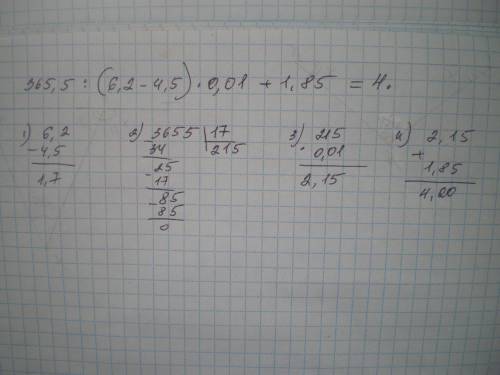 365,5 : (6,2 - 4,5) · 0,01 + 1,85 = 4.
1) 6,2
- 4,5
1,7
2) - 3655 | 17
34 215
- 25
17
- 85
85
0
3) 215
· 0,01
2,15
4) 2,15
+
1,85
4,00